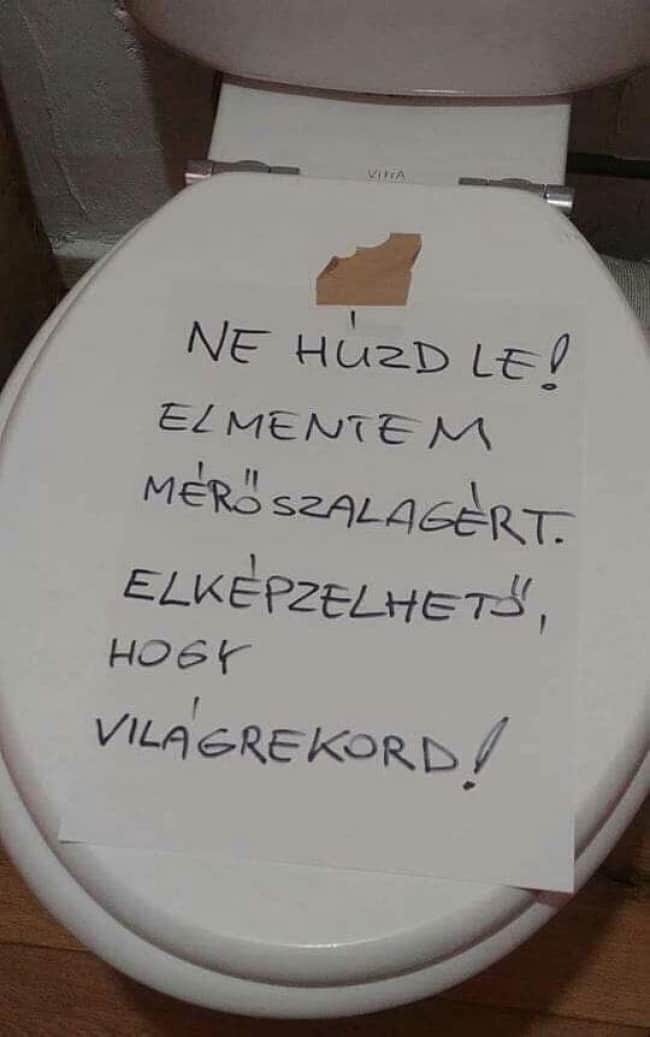 VitrA
NE HÚZD LE!
ELMENTEM
MÉRŐSZALAGÉRT.
ELKÉPZELHETŐ,
HOGY
VILÁGREKORD!